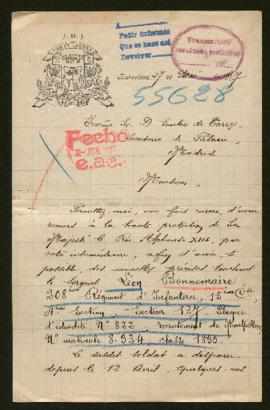 J. M. J.
A
Pedir informes
Que se hace así
Devolver
Barcelona 27 de 1917
55628
Excmo Sr. D Emilio de Torres
Secretaria de Palacio
Madrid
Fecho
2 JUN. 1917
e.a.c.
Monsieur,
Permettez-moi, une fois encore, d'avoir
recours à la haute protection de Sa
Majesté le Roi Alphonse XIII, par
votre intermédiaire, afin d'avoir, si
possible, des nouvelles précises touchant
le Sergent Léon Bonnemaire
208me Régiment d'Infanterie, 15ème Cie,
Section, Secteur 137. Plaque
d'identité Nº 822, recrutement de Montpellier
Nº matricule 8.934 classe 1895.
Le susdit soldat a disparu
depuis le 12 Avril. Quelques-uns